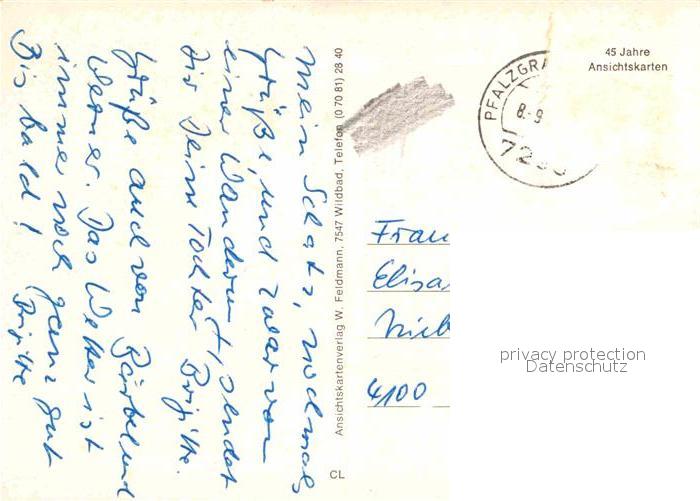 Mein Schatz, nochmals
Grüße, und zwar von
einer Wanderung, sendet
Dir Deine Tochter Brigitte.
Grüße auch von Bärbel und
Werner. Das Wetter ist
immer noch ganz gut
Bis bald! Brigitte
Ansichtskartenverlag W. Feldmann, 7547 Wildbad, Telefon (0 70 81) 28 40
CL
45 Jahre
Ansichtskarten
PFALZGRA
8.-9
Frau
Elisa
4100
privacy protection
Datenschutz